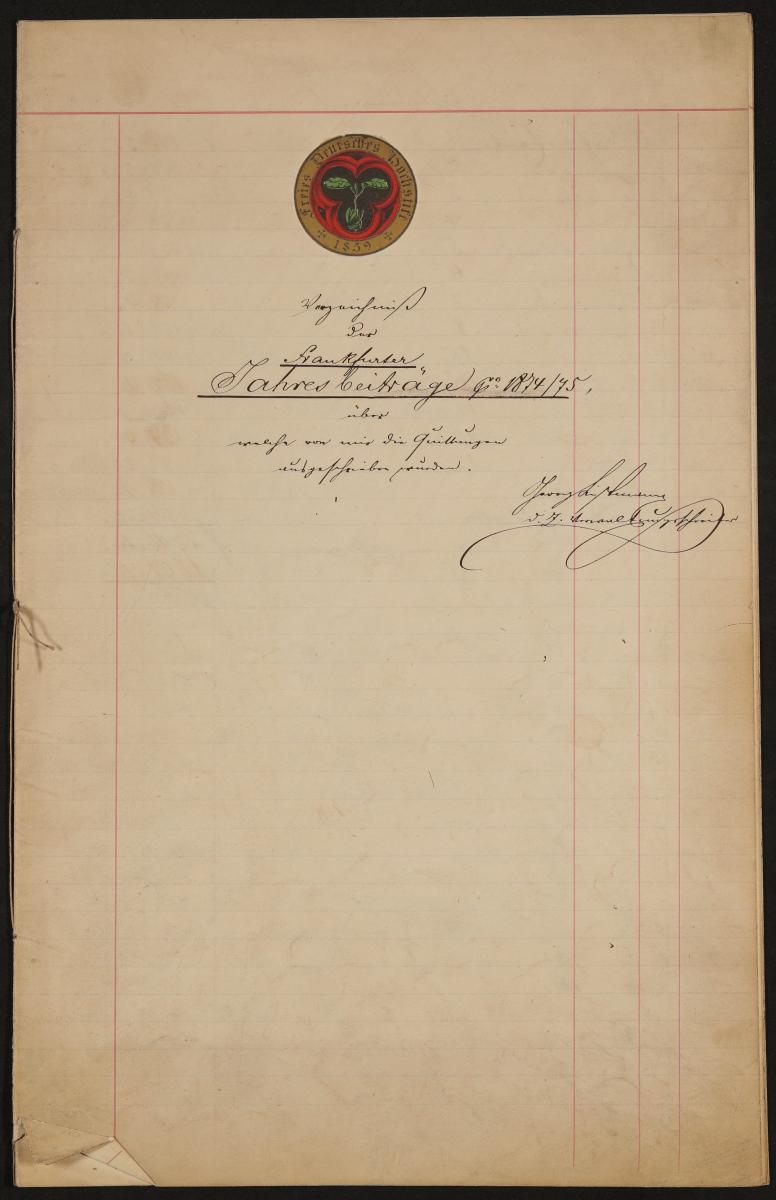 Freies Deutsches Hochstift
1859
Verzeichniß
der
Frankfurter
Jahresbeiträge pro 1874/75,
über
welche von mir die Quittungen
ausgeschrieben wurden.
Georg
d. Z. Verwaltungsschreiber